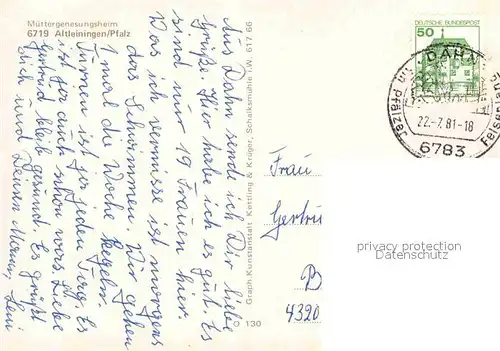 Müttergenesungsheim
6719 Altleiningen/Pfalz
Aus Dahn sende ich Dir liebe
Grüße. Hier habe ich es gut. Es
sind nur 19 Frauen hier.
Was ich vermisse ist morgens
das Schwimmen. Wir gehen
1 mal die Woche kegeln.
Turnen ist jeden Tag. Es
ist ja auch schon was. Liebe
Gertrud bleib gesund. Es grüßt
Dich und Deinen Mann,
Graph. Kunstanstalt Kettling & Krüger, Schalksmühle i.W. 617 66
130
DEUTSCHE BUNDESPOST
50
DAHN
22.-7.81-18
6783
Frau
Gertru
B
4320
privacy protection
Datenschutz